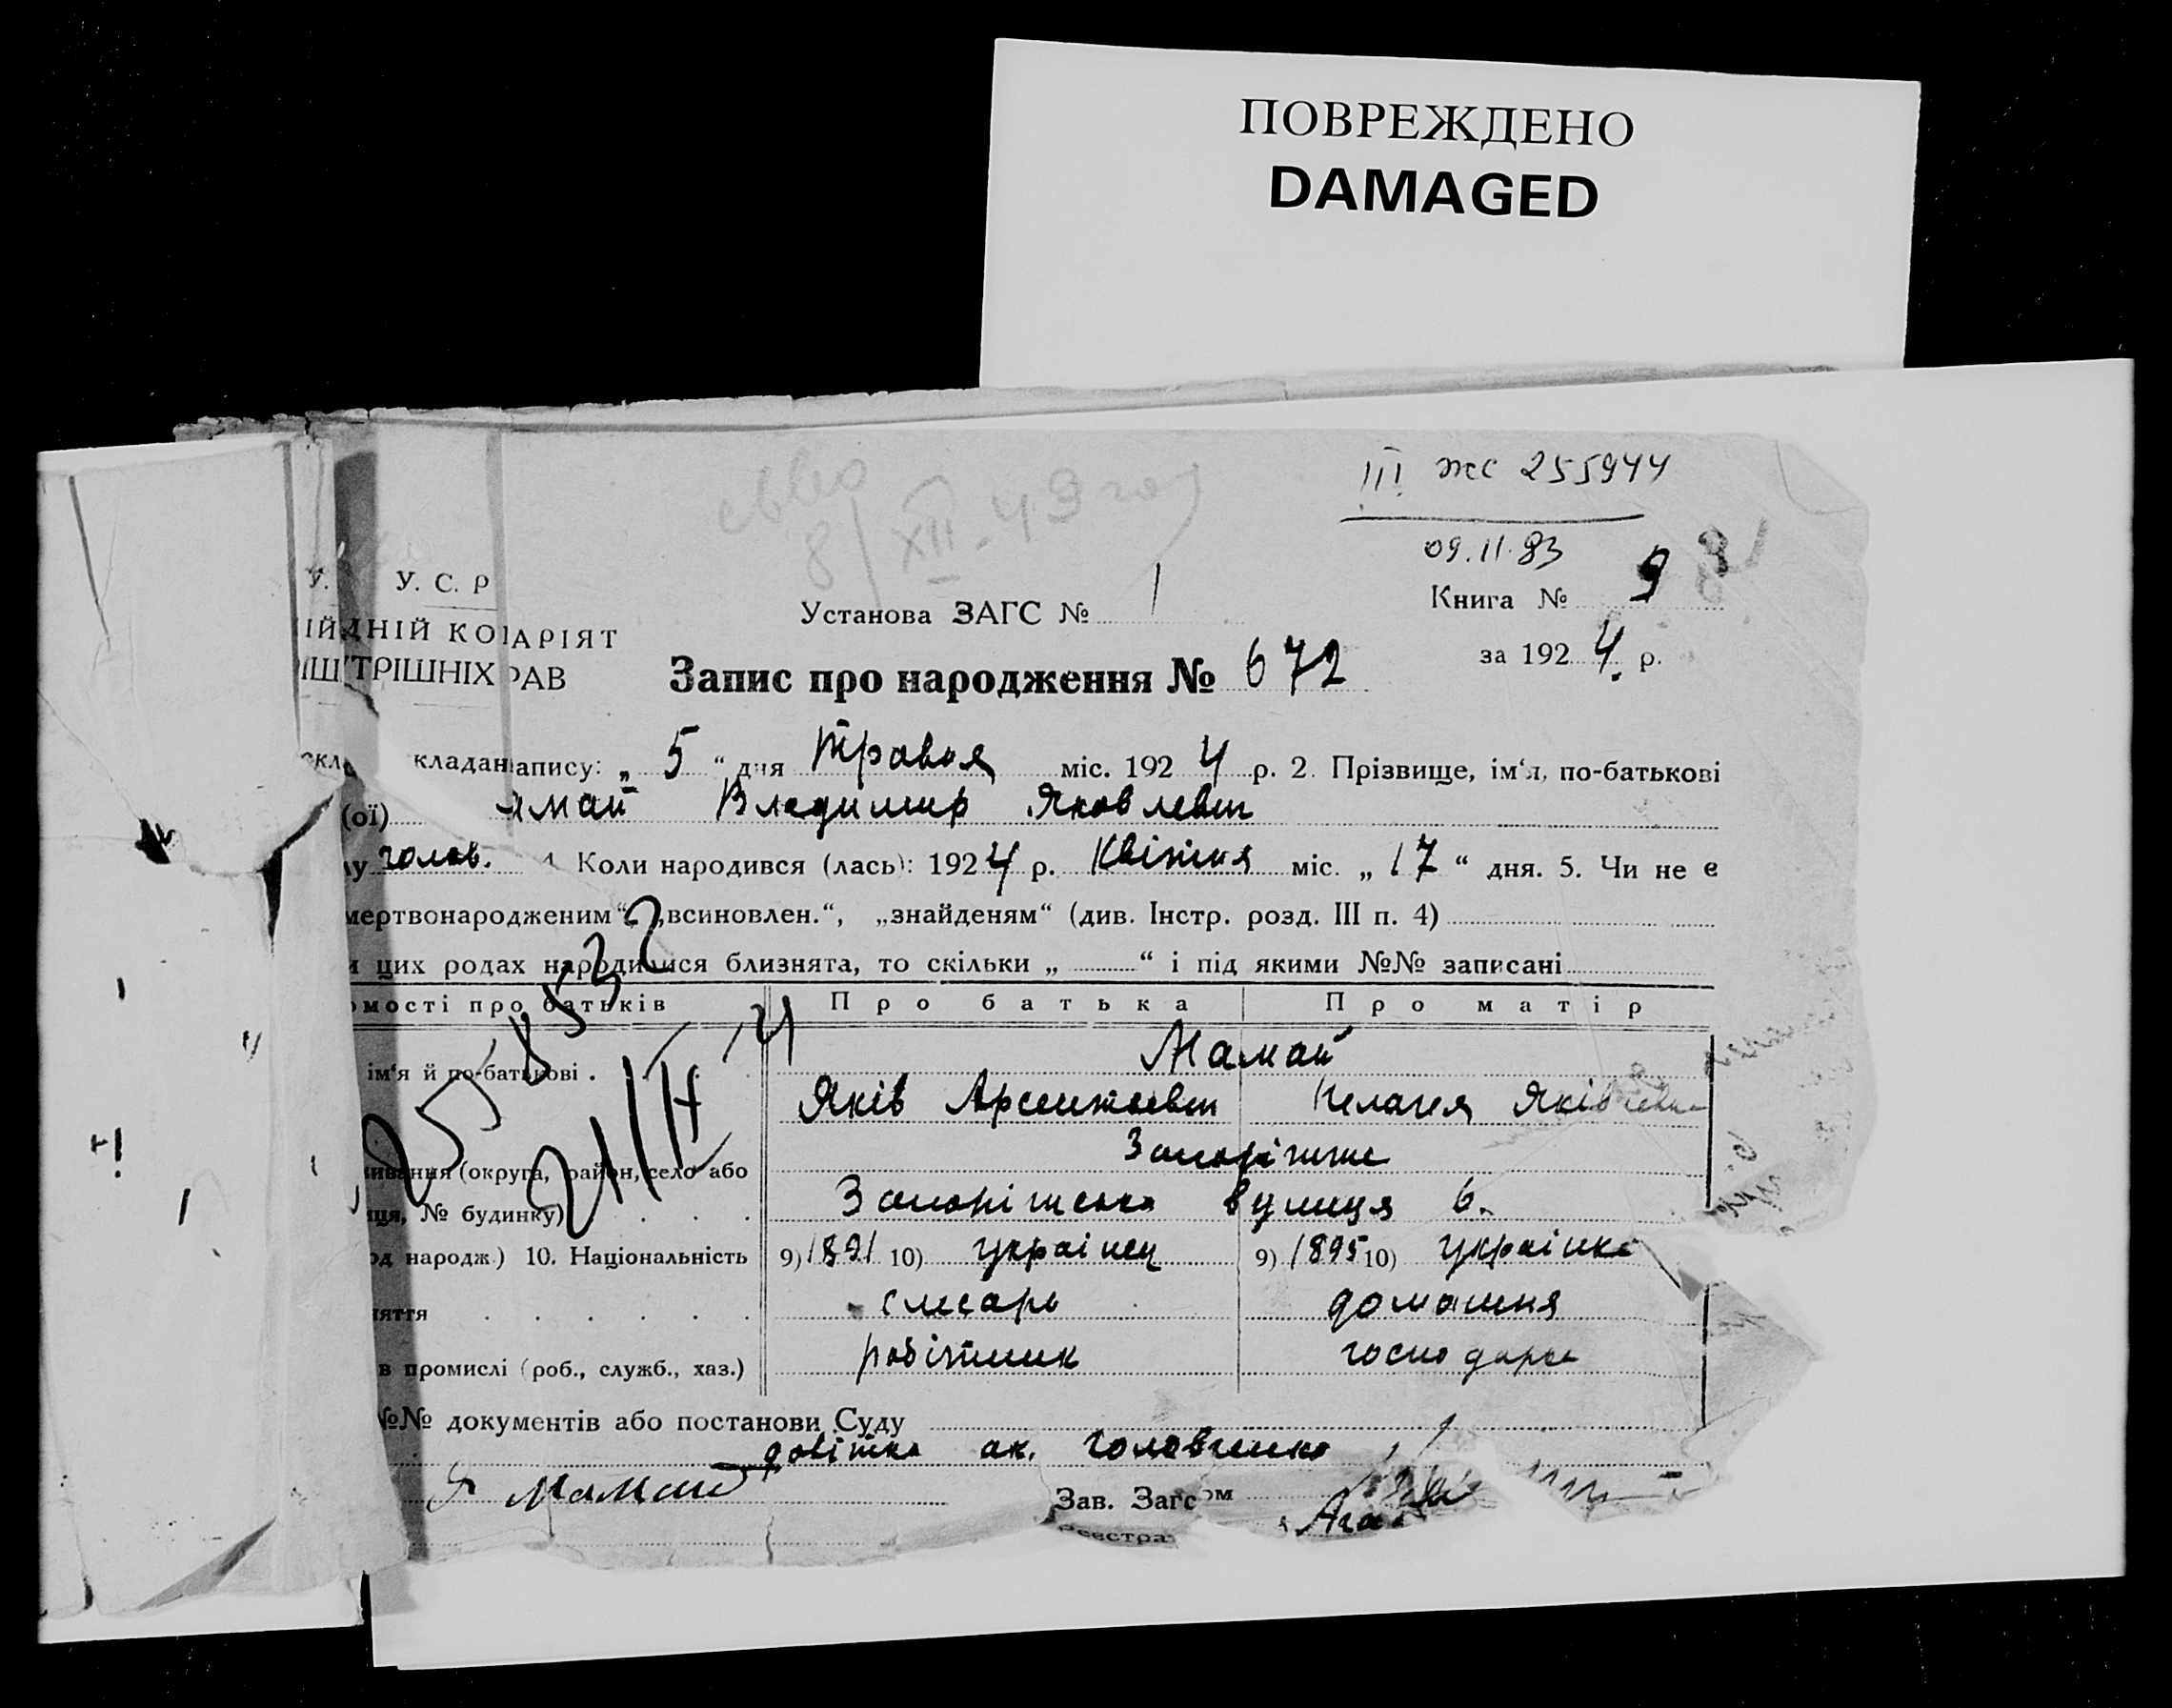 ПОВРЕЖДЕНО
DAMAGED
III ЖС 255944
09.11.83
8/XII-49
У. У. С. Р
Установа ЗАГС № 1
Книга № 9
за 1924 р.
ІЙ ДНІЙ КО АРІЯТ
ІШ ТРІШНІХ РАВ
Запис про народження № 672
скл кладан апису: „ 5 “ дня Травня міс. 1924 р. 2. Прізвище, ім‘я, по-батькові
(ої) амай Владимир Яковлевич
у голов. 4. Коли народився (лась): 1924 р. Квітня міс. „ 17 “ дня. 5. Чи не є
мертвонародженим“, „всиновлен.“, „знайденям“ (див. Інстр. розд. III п. 4)
и цих родах народилися близнята, то скільки „ “ і під якими №№ записані
омості про батьків Про батька Про матір
Мамай
ім‘я й по-батькові . Яків Арсентьевич Пелагея Яківлевна
Запоріжже
живання (округа, район, село або
ця, № будинку) Запоріжська вулиця 6.
од народж.) 10. Національність 9) 1891 10) українец 9) 1895 10) українка
няття слесарь домашня
в промислі (роб., служб., хаз.) робітник господарка
№№ документів або постанови Суду
довітка ак. Головченко
Я Мамай
Зав. Загс ом
еестра